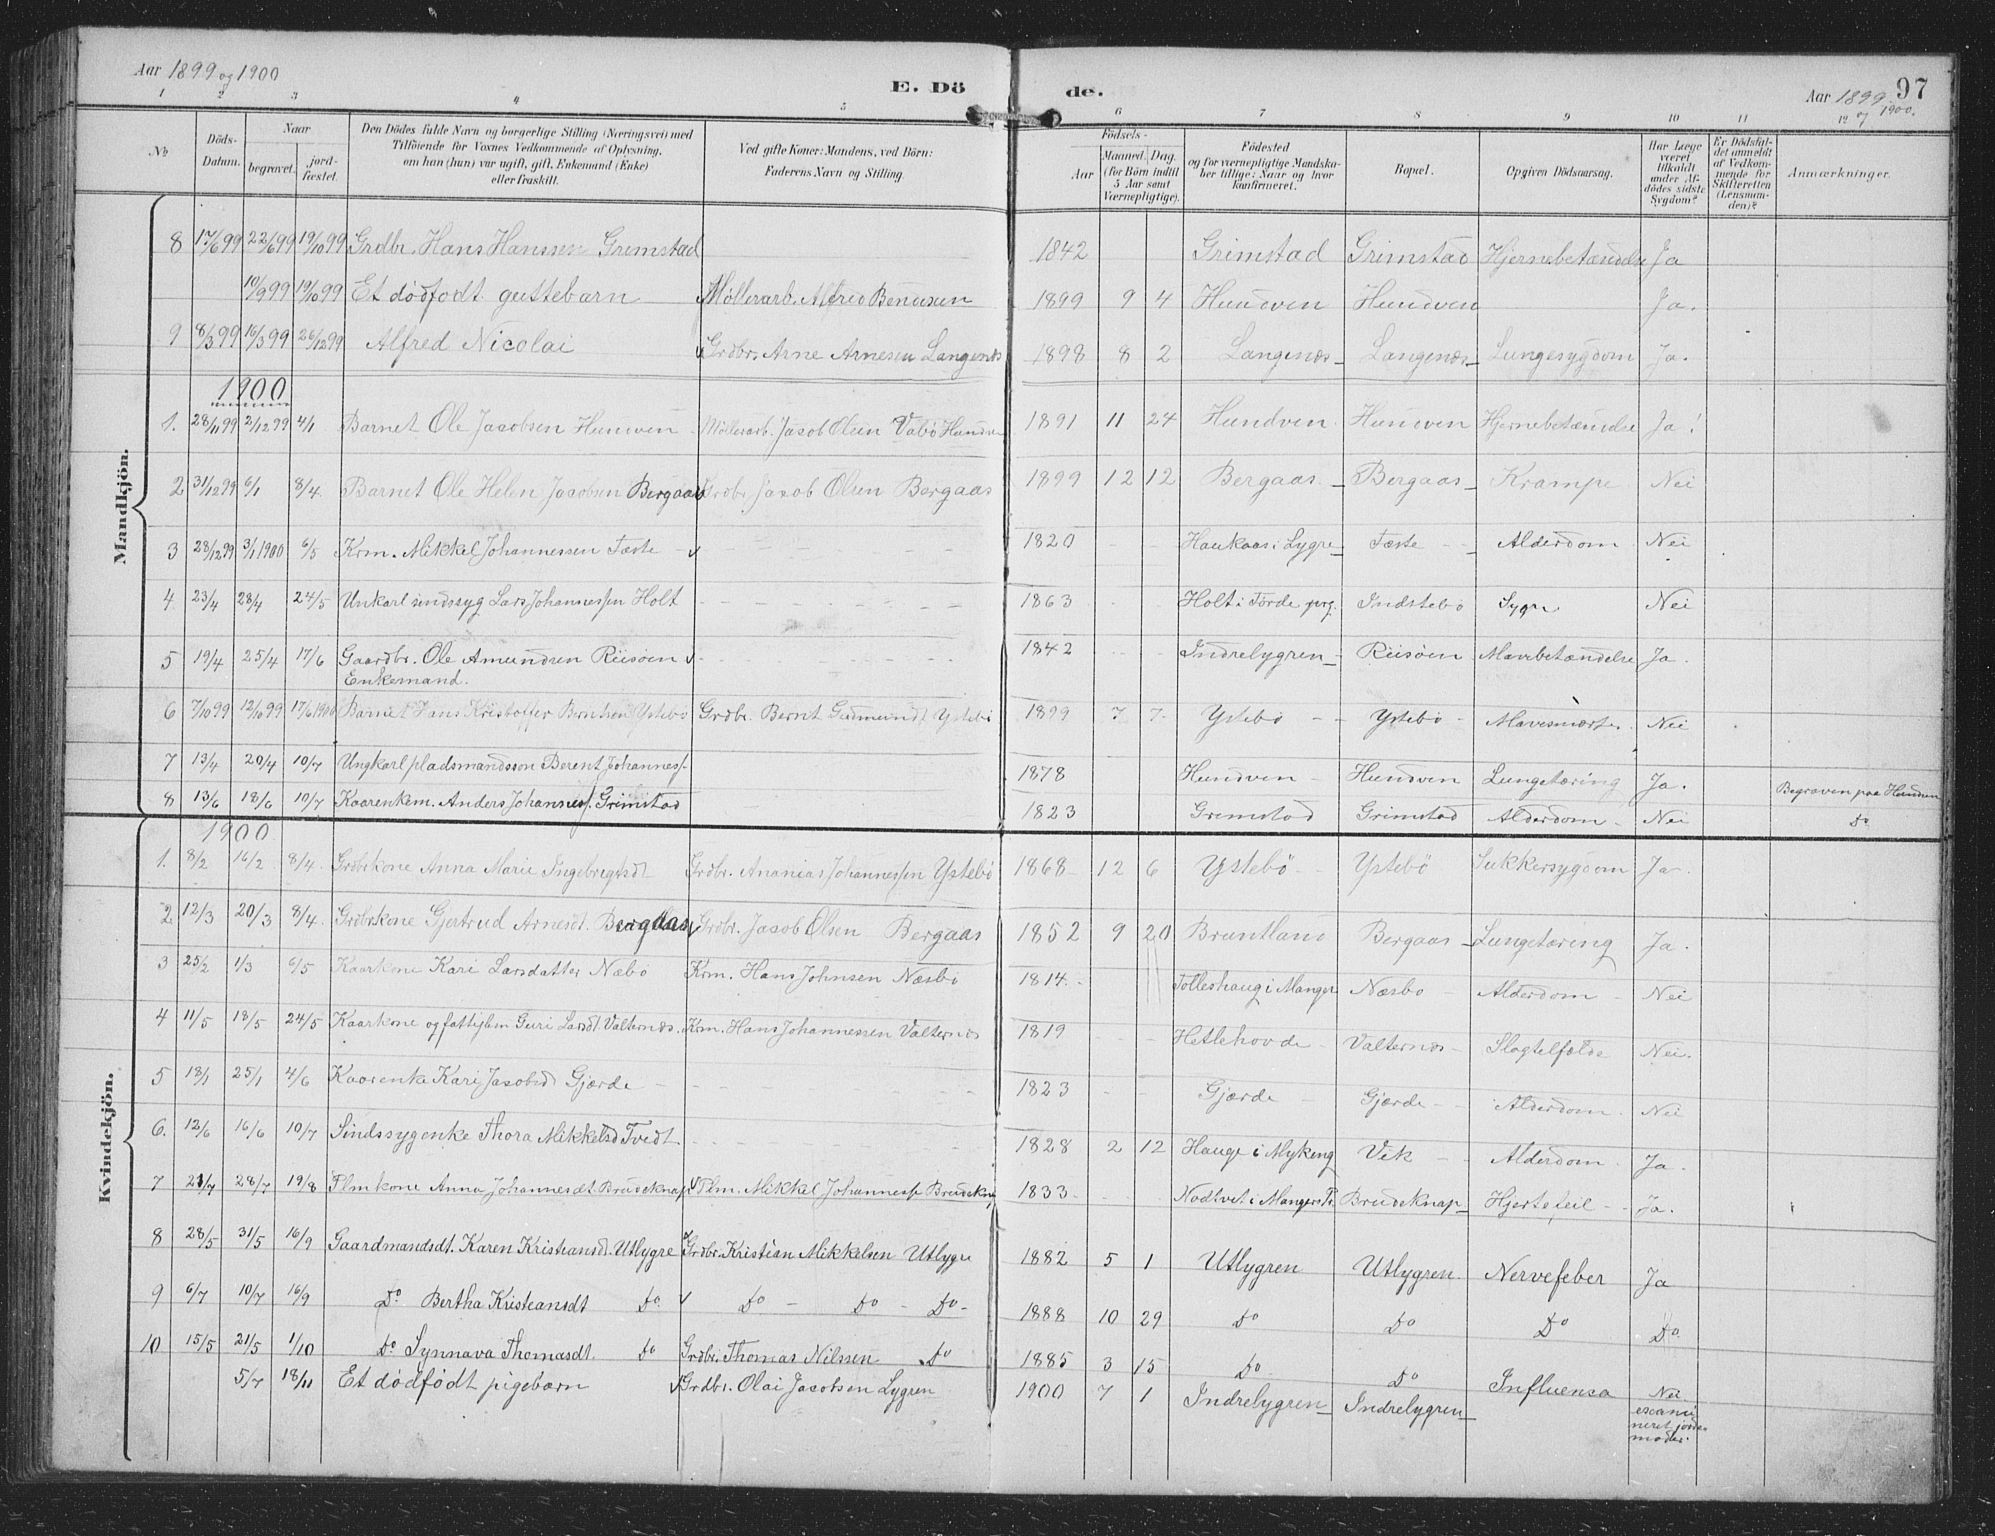 Aar 1899 og 1900
E. Dö de.
Aar 1899 og 1900.
97
1 2 3 4 5 6 7 8 9 10 11 12
No
Döds-Datum.
Naar
begravet.
jord-fæstet.
Den Dödes fulde Navn og borgerlige Stilling (Næringsvei) med
Tilföiende for Voxnes Vedkommende af Oplysning,
om han (hun) var ugift, gift, Enkemand (Enke)
eller fraskilt.
Ved gifte Koner: Mandens, ved Börn:
Faderens Navn og Stilling.
Födsels-
Aar
Maaned. Dag.
(for Börn indtil
5 Aar samt
Værnepligtige).
Födested
og for værnepligtige Mandska-
ber tillige: Naar og hvor
konfirmeret.
Bopæl.
Opgiven Dödsaarsag.
Har Læge
været
tilkaldt
under Af-
dödes sidste
Sygdom?
Er Dödsfal-
det anmeldt
af Vedkom-
mende for
Skifteretten
(Lensman-
den)?
Anmærkninger.
Mandkjön.
8 17/6 99 22/6 99 19/10 99 Grdbr. Hans Hanssen Grimstad 1842 Grimstad Grimstad Hjernebetændelse Ja
10/9 99 19/10 99 Et dödfodt guttebarn Møllerarb. Alfred Bendiksen 1899 9 4 Hundven Hundven Ja.
9 8/3 99 16/3 99 26/12 99 Alfred Nicolai Grdbr. Arne Arnesen Langenæs 1898 8 2 Langenæs Langenæs Lungesygdom Ja.
1900
1. 28/11 99 2/12 99 4/1 Barnet Ole Jacobsen Hundven Møllerarb. Jacob Olsen Vabö Hundven 1891 11 24 Hundven Hundven Hjernebetændelse Ja!
2 31/12 99 6/1 8/4. Barnet Ole Helen Jacobsen Bergaas Grdbr Jacob Olsen Bergaas 1899 12 12 Bergaas Bergaas Krampe Nei
3 28/12 99 3/1 1900 6/5 Krm. Mikkel Johannessen Tæste 1820 Haukaas i Lygre Tæste Alderdom Nei
4 23/4 28/4 24/5 Unkarl sindssyg Lars Johannessen Holt 1863 Holt i Förde prg. Indstebö Sygn Nei
5 19/4 25/4 17/6 Gaardbr. Ole Amundsen Riisöen 1842 Indrelygren Riisöen Mavebetændelse Ja.
Enkemand.
6 7/10 99 12/10 99 17/6 1900 Barnet Hans Kristoffer Berntsen Ystebö Grdbr. Bernt Gudmunds Ystebö 1899 7 7 Ystebö Ystebö Mavesmærte. Nei
7 13/4 20/4 10/7 Ungkarl pladsmandsson Berent Johannes. 1878 Hundven Hundven Lungetæring Ja. Begraven paa Hundven
8 13/6 18/6 10/7 Kaarenkem. Anders Johanness. Grimstad 1823 Grimstad Grimstad Alderdom Nei Do
Kvindekjön.
1900
1. 8/2 16/2 8/4. Grdbrkone Anna Marie Ingebregtsdt Grdbr. Ananias Johannessen Ystebö 1868 12 6 Ystebö Ystebö Sukkersygdom Ja
2. 12/3 20/3 8/4. Grdbrkone Gjertrud Arnesdt. Bergaas Grdbr. Jacob Olsen Bergaas 1852 9 20 Bruntland Bergaas Lungetæring Ja.
3 25/2 1/3 6/5 Kaarkone Kari Larsdatter Næbö Krm. Hans Johnsen Næsbö 1814 Tolleshaug i Manger Næsbö Alderdom Nei
4 11/5 18/5 24/5 Kaarkone og fattiglem Guri Larsdt Valternæs. Krm. Hans Johannessen Valternæs 1819 Hetlehovde Valternæs Slagtelfælde Nei.
5 18/1 25/1 4/6 Kaarenke Kari Jacobsd Gjærde 1823 Gjærde Gjærde Alderdom Nei
6. 12/6 16/6 10/7 Sindssygenke Thora Mikkelsd Tvedt. 1828 2 12 Hauge i Myking Vik Alderdom. Ja.
7 21/7 28/7 19/8 Flmkone Anna Johannesdt. Brudeknap Flm. Mikkel Johannessen Brudeknap 1833 Nodtvet i Mangers Brudeknap Hjertefeil Ja.
8 28/5 31/5 16/9 Gaardmandsdt. Karen Kristiansd. Utlygre Grdbr. Kristian Mikkelsen Utlygre 1882 5 1 Utlygren Utlygren Nervefeber Ja
9 6/7 10/7 16/9 Do Bertha Kristiansdt Do Do Do Do 1888 10 29 Do Do Do Do
10 15/5 21/5 1/10 Do Synnava Thomasdt. Do Grdbr. Thomas Nilssen Do 1885 3 15 Do Do Influensa Nei
5/7 18/11 Et dödfödt pigebarn Grdbr. Olai Jacobsen Lygren 1900 7 1 Indrelygren Indrelygren examineret jordemoder.